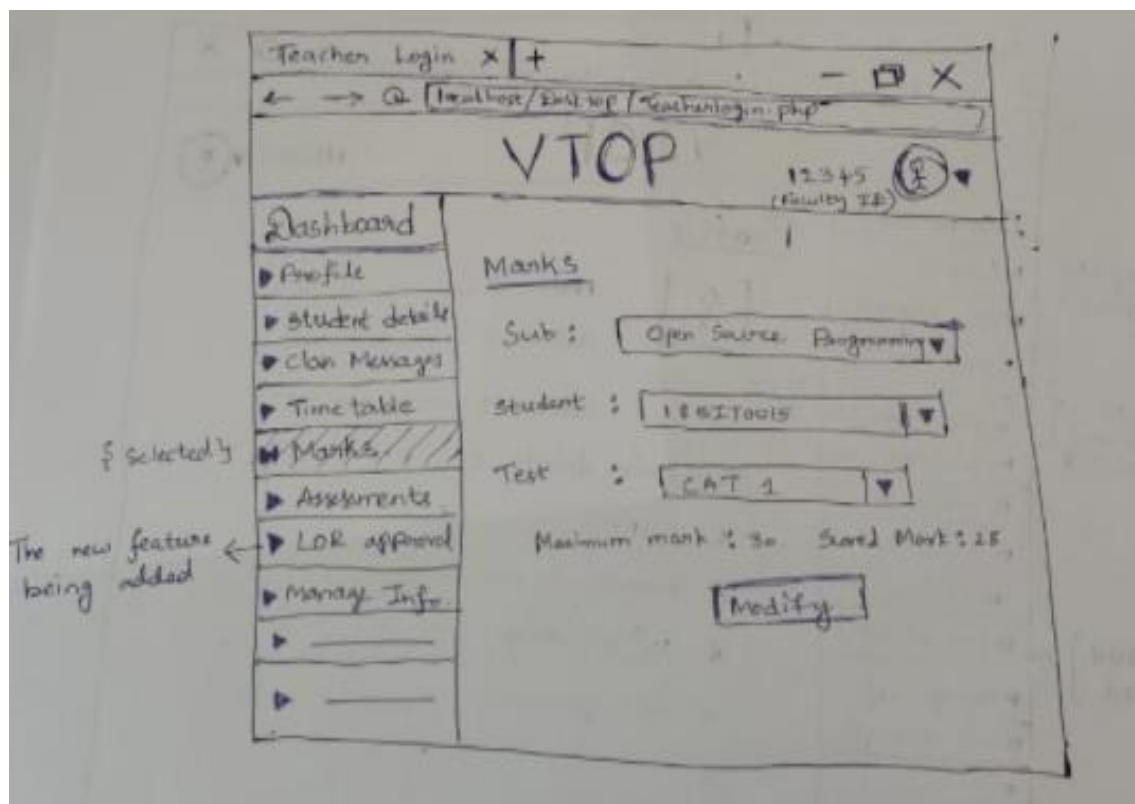 Teacher Login × +
localhost/ / Teacherlogin.php
VTOP
12345
(Faculty Id)
Dashboard
Profile
Student details
Class Messages
Time table
{ Selected }
Marks
Assessments
The new feature being added
LOR approval
Manage Info
Marks
Sub : Open Source Programming
Student : 18BIT0015
Test : CAT 1
Maximum mark : 30 Scored Mark : 28
Modify